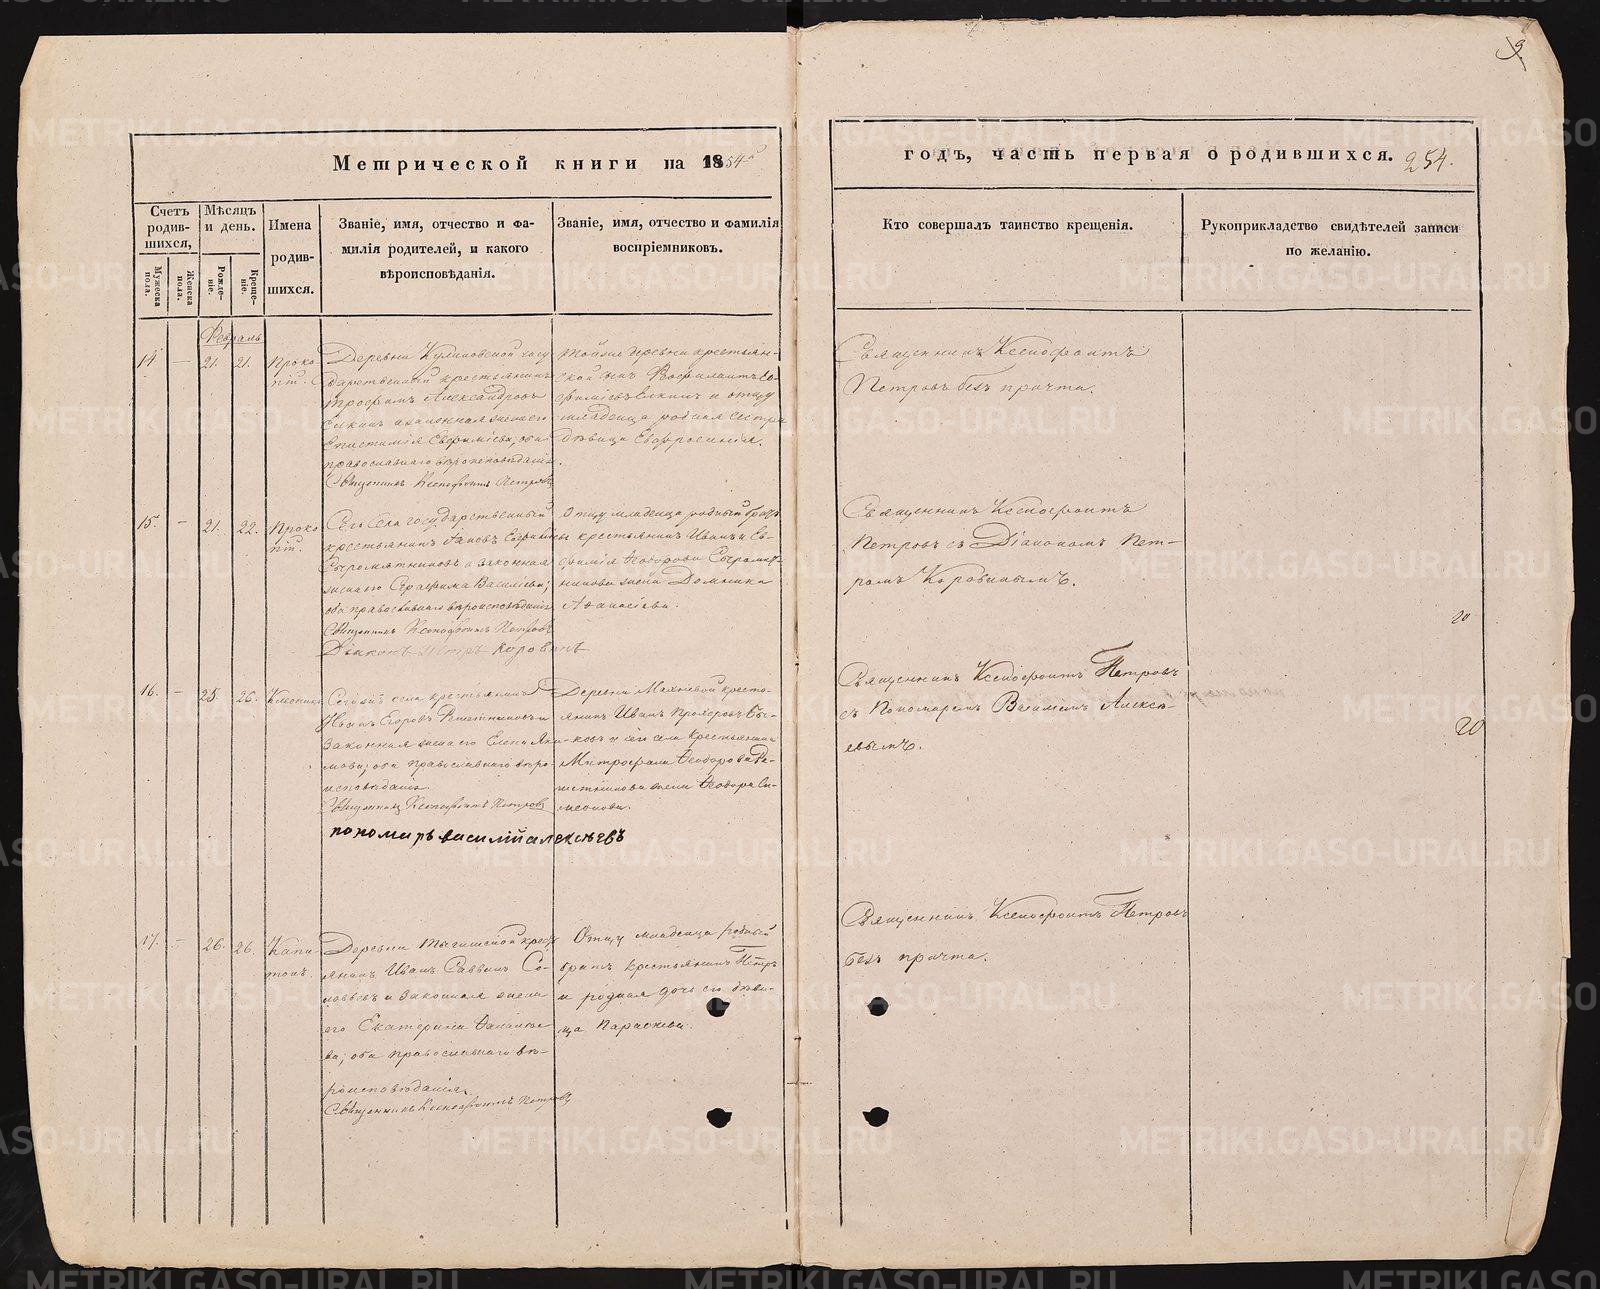 Метрической книги на 1854й
годъ, часть первая о родившихся. 254.
Счетъ родив-шихся,
Мужеска пола.
Женска пола.
Мѣсяцъ и день.
Рожде-ніе.
Креще-ніе.
Имена родив-шихся.
Званіе, имя, отчество и фа-
милія родителей, и какого
вѣроисповѣданія.
Званіе, имя, отчество и фамилія
воспріемниковъ.
Кто совершалъ таинство крещенія.
Рукоприкладство свидѣтелей записи
по желанію.
Февраль
14. — 21. 21. Проко-
пій.
Деревни Куликовской госу-
дарственный крестьянинъ
Трофимъ Александровъ
Елкинъ и законная жена его
Епистимія Евфиміева; оба
православнаго вѣроисповѣданія.
Священникъ Ксенофонтъ Петровъ
Тойже деревни крестьян-
ской сынъ
Елкинъ и отцу
младенца родная сестра
дѣвица Евфросинія.
Священникъ Ксенофонтъ
Петровъ безъ причта.
15. — 21. 22. Проко-
пій.
Сего села государственный
крестьянинъ Іаковъ Евфиміевъ
Сыромятниковъ и законная
жена его Серафима Василіева;
оба православнаго вѣроисповѣданія
Священникъ Ксенофонтъ Петровъ
Діаконъ Петръ Коровинъ
Отцу младенца родный братъ
крестьянинъ Иванъ и Ев-
фимія Ѳеодорова Сыромят-
никова жена Домника
Аѳанасіева.
Священникъ Ксенофонтъ
Петровъ съ Діакономъ Пет-
ромъ Коровинымъ.
16. — 25. 26. Никонъ
Сего же села крестьянинъ
Иванъ Егоровъ Решетниковъ и
законная жена его Елена Яки-
мова; оба православнаго вѣро-
исповѣданія.
Священникъ Ксенофонтъ Петровъ
пономарь василій алексѣевъ
Деревни Махневой кресть-
янинъ Иванъ Прохоровъ Бы-
ковъ и сего села крестьянина
Митрофана Ѳеодорова Ре-
шетникова жена Ѳеодора Си-
меонова.
Священникъ Ксенофонтъ Петровъ
съ Пономаремъ Василіемъ Алексѣ-
евымъ.
17. — 26. 26. Капи-
тонъ.
Деревни Тыгишской кресть-
янинъ Иванъ Саввинъ Со-
ловьевъ и законная жена
его Екатерина Данилье-
ва; оба православнаго вѣ-
роисповѣданія.
Священникъ Ксенофонтъ Петровъ
Отцу младенца родный
братъ крестьянинъ Петръ
и родная дочь его дѣви-
ца Параскева.
Священникъ Ксенофонтъ Петровъ
безъ причта.
METRIKI.GASO-URAL.RU